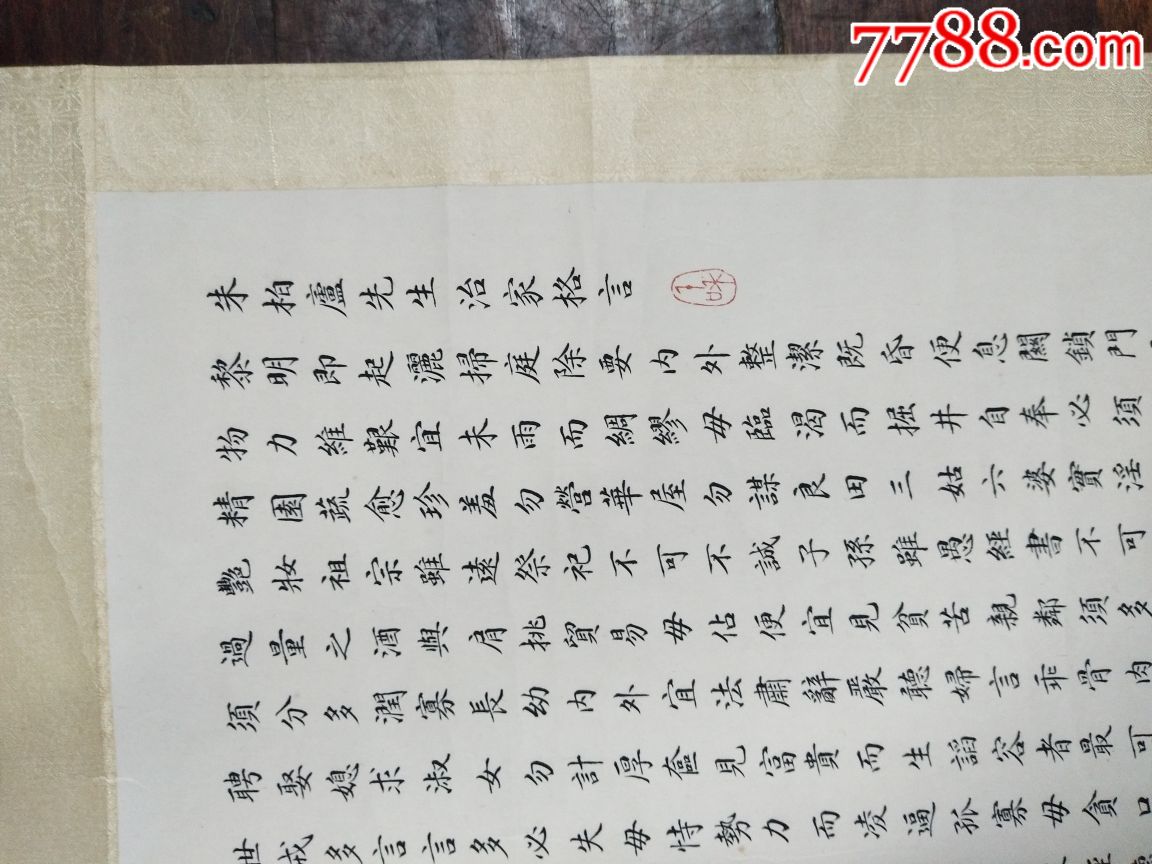 7788.com
朱柏廬先生治家格言
黎明即起灑掃庭除要內外整潔既昏便息關鎖門
物力維艱宜未雨而綢繆毋臨渴而掘井自奉必須
精園蔬愈珍羞勿營華屋勿謀良田三姑六婆實淫
艷妝祖宗雖遠祭祀不可不誠子孫雖愚經書不可
過量之酒與肩挑貿易毋佔便宜見貧苦親鄰須多
須分多潤寡長幼內外宜法肅辭嚴聽婦言乖骨肉
聘娶媳求淑女勿計厚奩見富貴而生諂容者最可
世戒多言言多必失毋恃勢力而凌逼孤寡毋貪口